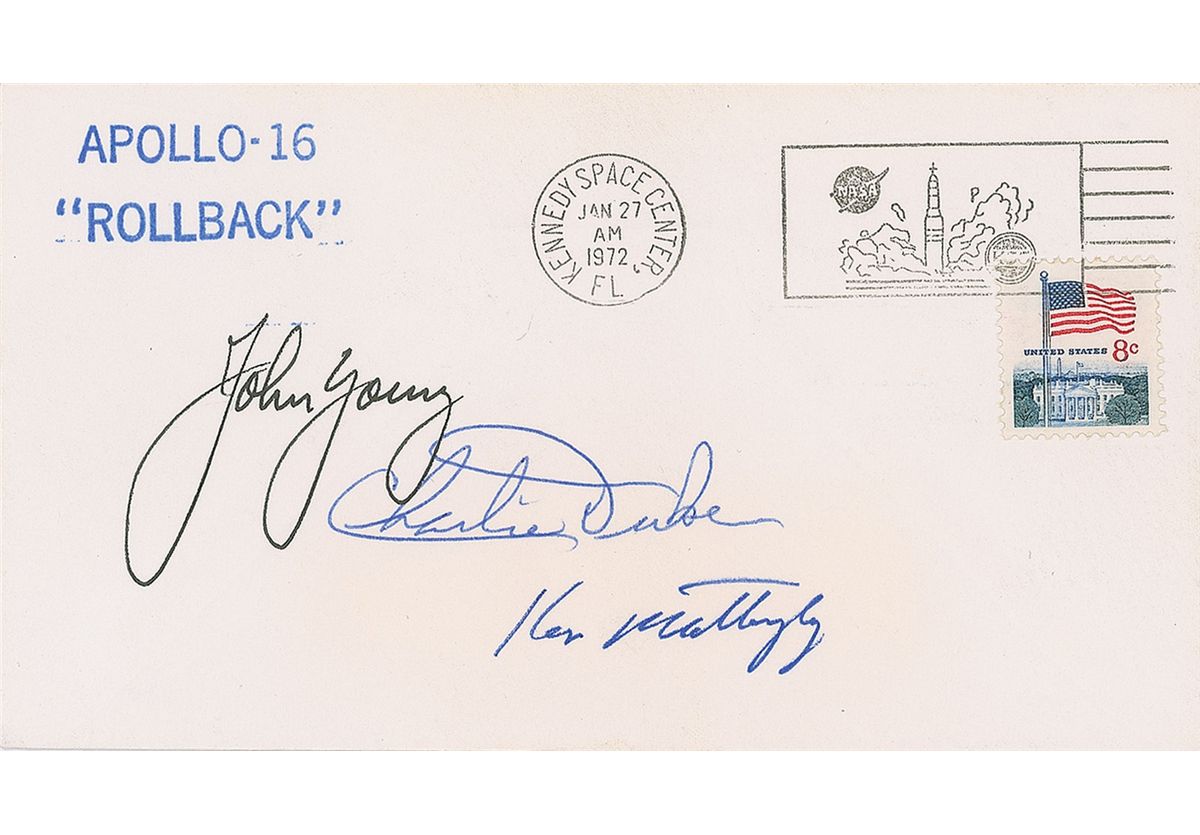 APOLLO-16
"ROLLBACK"
KENNEDY SPACE CENTER, FL
JAN 27
AM
1972
NASA
UNITED STATES 8c
John Young
Charlie Duke
Ken Mattingly